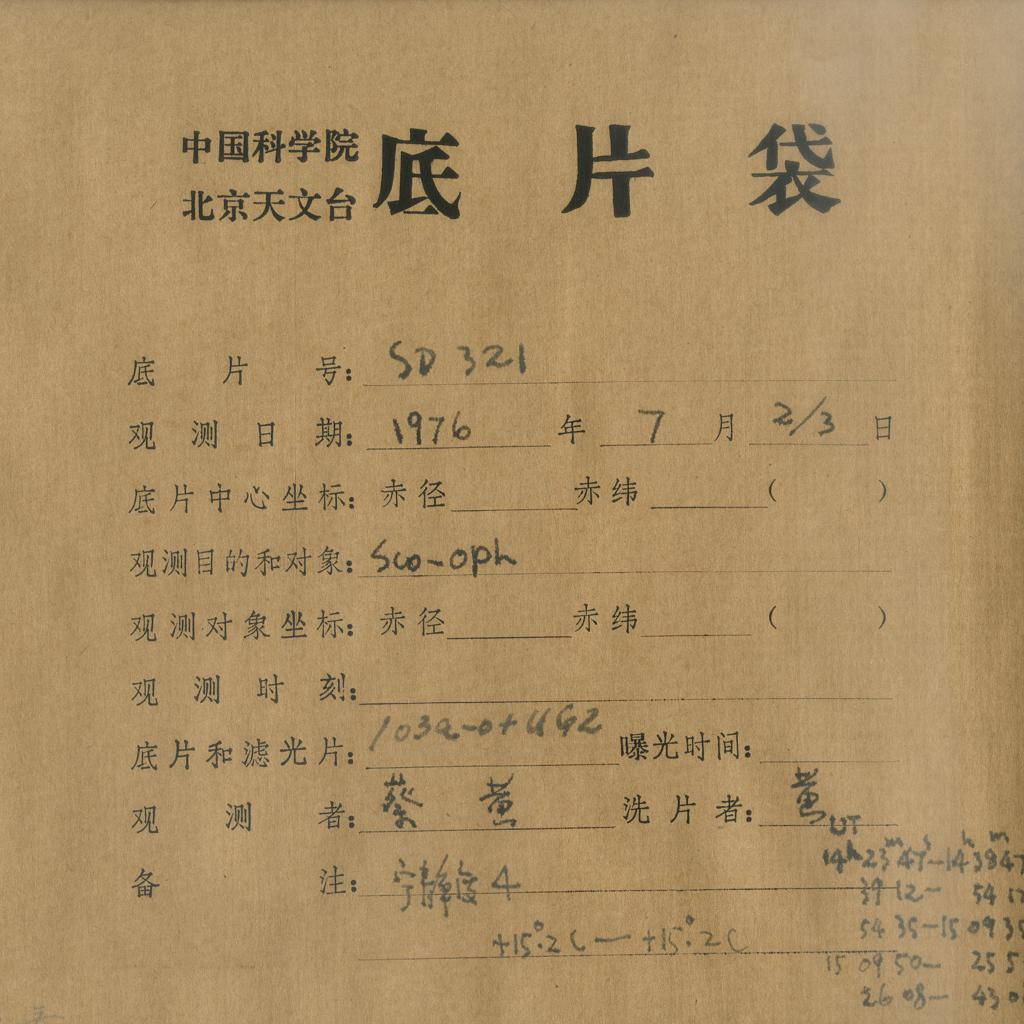 中国科学院
北京天文台
底片袋
底片号: SD 321
观测日期: 1976 年 7 月 2/3 日
底片中心坐标: 赤径 赤纬 ( )
观测目的和对象: Sco-oph
观测对象坐标: 赤径 赤纬 ( )
观测时刻:
底片和滤光片: 103a-o+UG2 曝光时间:
观测者: 蔡 黄 洗片者: 黄
UT
备注: 宁静度 4
14h 23m 47s-14h 38m 47
39 12- 54 12
+15°.2C — +15°.2C
54 35-15 09 35
15 09 50- 25 5
26 08- 43 0